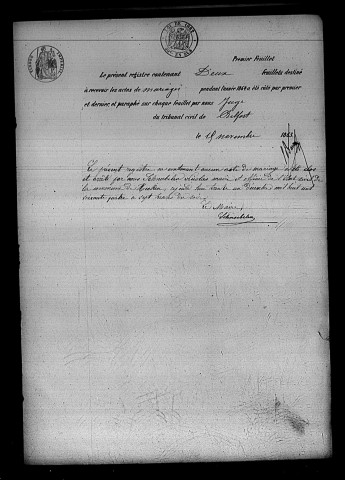 Premier Feuillet
Le présent registre contenant Deux feuillets destiné
à recevoir les actes de mariages pendant l'année 1864 a été coté par premier
et dernier, et paraphé sur chaque feuillet par nous Juge
du tribunal civil de Belfort
le 18 novembre 1863.
Le présent registre ne contenant aucun acte de mariage a été clos
et arrêté par nous nicolas maire et officier de l'état civil de
la commune de ce jourd'hui trente un Décembre mil huit cent
soixante quatre à sept heures du soir.
Le Maire